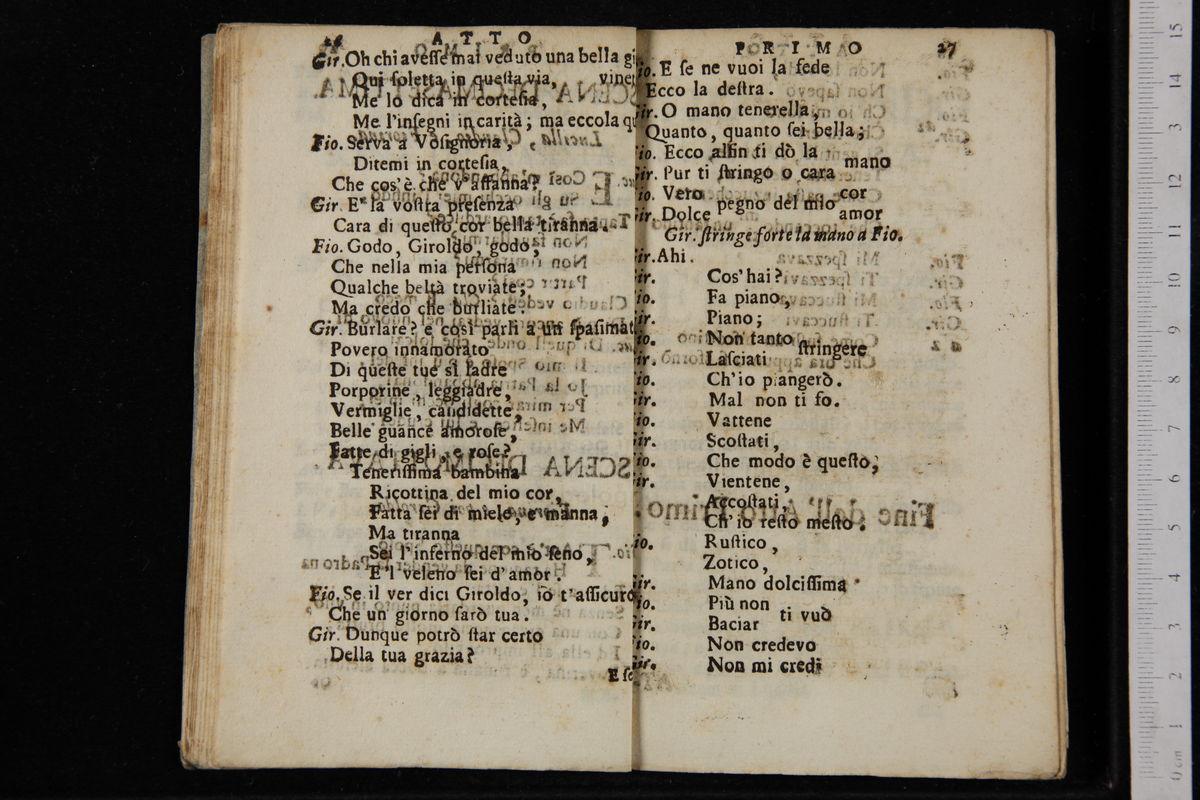 26 ATTO
Gir. Oh chi aveſſe mai veduto una bella gi
Qui ſoletta in queſta via, vine
Me lo dica in corteſia,
Me l'inſegni in carità; ma eccola qu
Fio. Serva a Voſignoria,
Ditemi in corteſia,
Che cos'è che v'affanna?
Gir. E' la voſtra preſenza
Cara di queſto cor bella tiranna.
Fio. Godo, Giroldo, godo,
Che nella mia perſona
Qualche beltà troviate;
Ma credo che burliate.
Gir. Burlare? e così parli a un ſpaſimat
Povero innamorato
Di queſte tue sì ladre
Porporine, leggiadre,
Vermiglie, candidette,
Belle guance amoroſe,
Fatte di gigli, e roſe?
Teneriſſima bambina
Ricottina del mio cor,
Fatta ſei di miele, e manna,
Ma tiranna
Sei l'inferno del mio ſeno,
E'l veleno ſei d'amor.
Fio. Se il ver dici Giroldo, io t'aſſicuro
Che un giorno ſarò tua.
Gir. Dunque potrò ſtar certo
Della tua grazia?
E ſe
PRIMO 27
io. E ſe ne vuoi la fede
Ecco la deſtra.
ir. O mano tenerella,
Quanto, quanto ſei bella;
io. Ecco alfin ti dò la mano
ir. Pur ti ſtringo o cara
io. Vero pegno del mio cor
ir. Dolce amor
Gir. ſtringe forte la mano a Fio.
ir. Ahi.
ir. Cos'hai?
io. Fa piano,
ir. Piano;
io. Non tanto ſtringere
ir. Laſciati
io. Ch'io piangerò.
ir. Mal non ti fo.
io. Vattene
ir. Scoſtati,
io. Che modo è queſto;
ir. Vientene,
Accoſtati,
Ch'io reſto meſto.
io. Ruſtico,
Zotico,
ir. Mano dolciſſima
io. Più non ti vuò
ir. Baciar
io. Non credevo
ir. Non mi credi